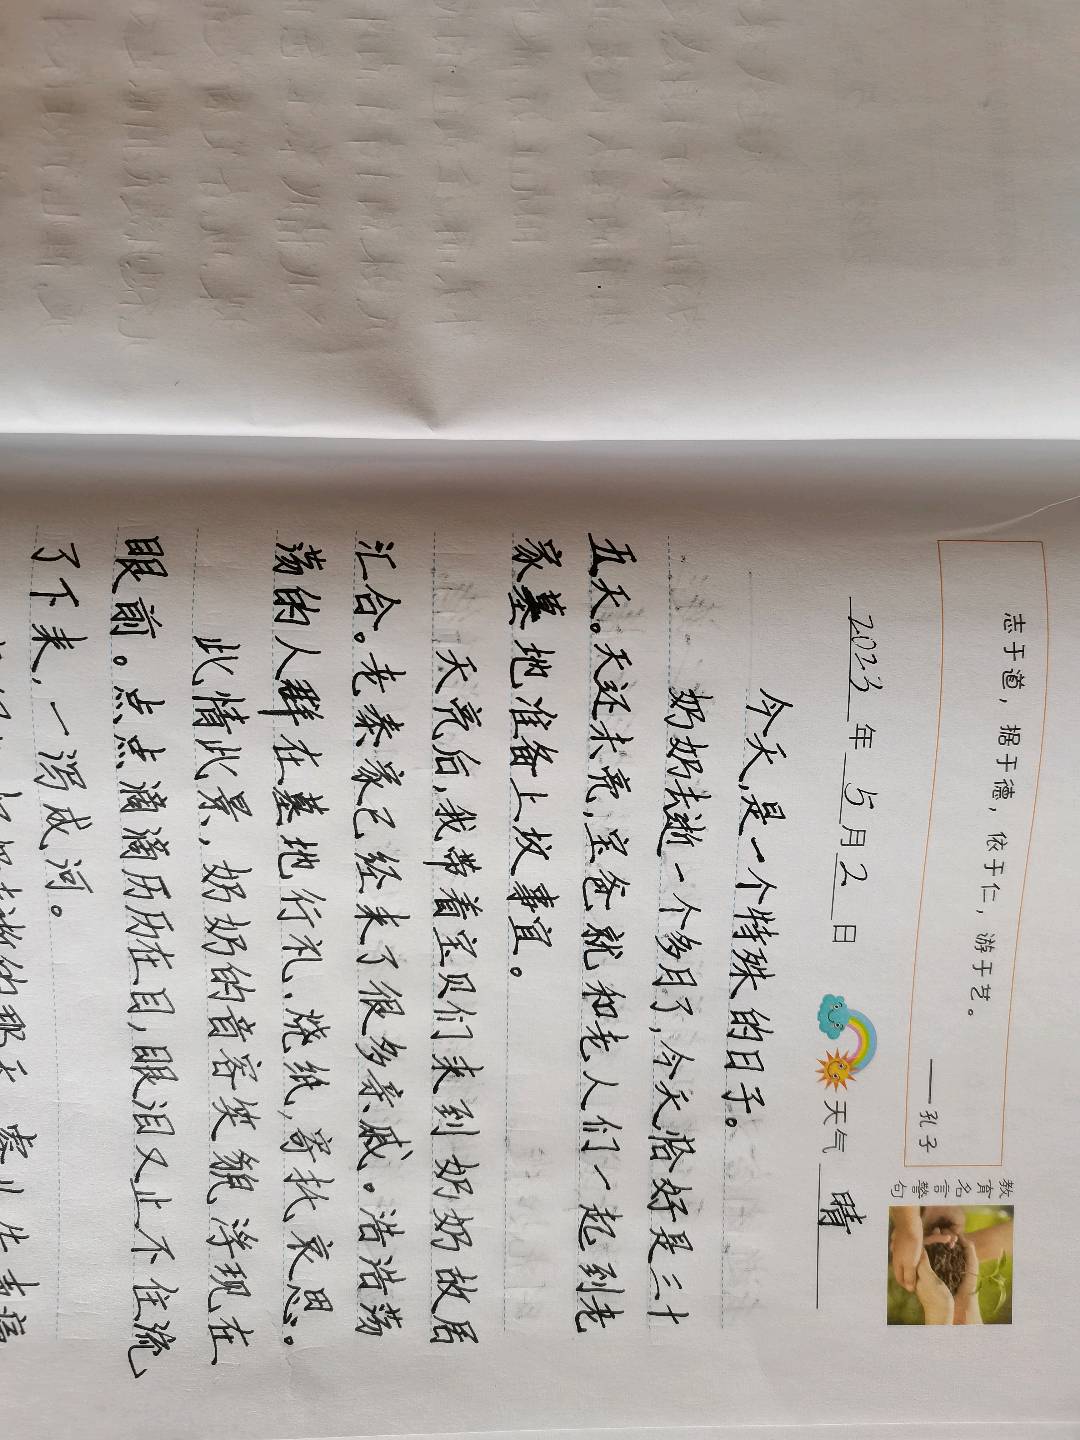 志于道，据于德，依于仁，游于艺。
——孔子
教育名言警句
2023年5月2日 天气 晴
今天,是一个特殊的日子。
奶奶去逝一个多月了,今天恰好是三十
五天。天还未亮,宝爸就和老人们一起到老
家墓地准备上坟事宜。
天亮后,我带着宝贝们来到奶奶故居
汇合。老秦家已经来了很多亲戚。浩浩荡
荡的人群在墓地行礼.烧纸,寄托哀思。
此情此景,奶奶的音容笑貌浮现在
眼前。点点滴滴历历在目,眼泪又止不住流
了下来,一泻成河。